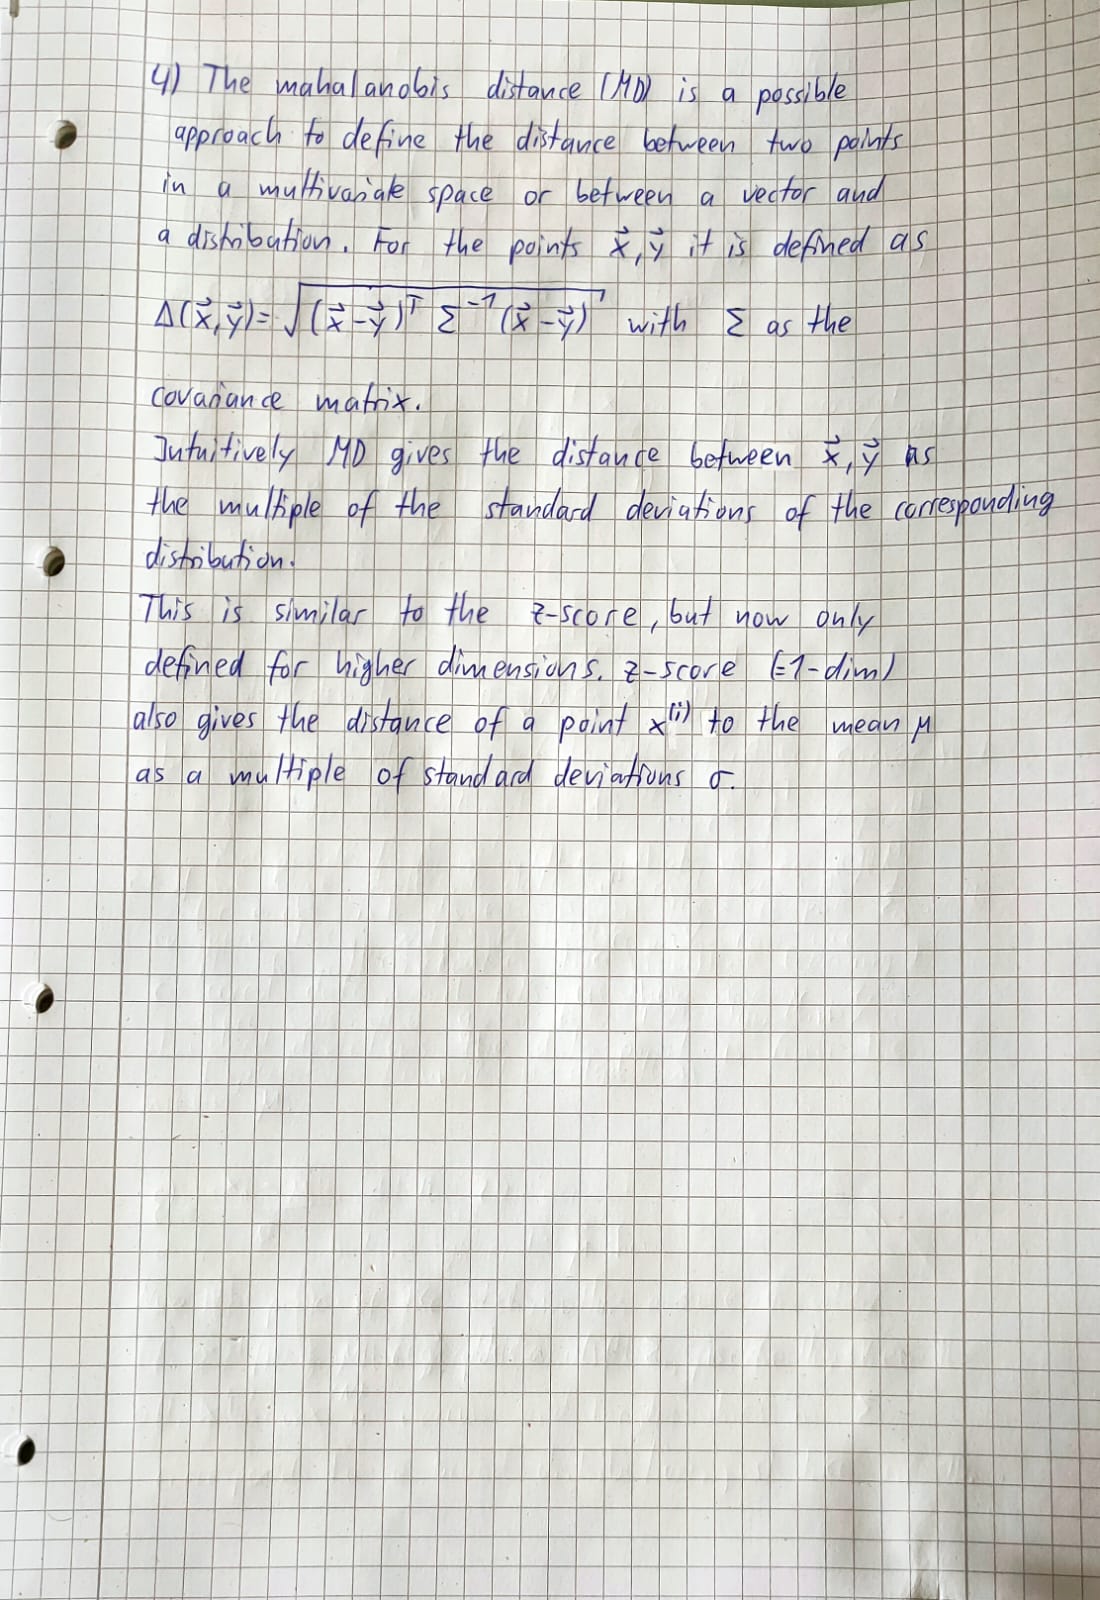 4) The mahalanobis distance (MD) is a possible
approach to define the distance between two points
in a multivariate space or between a vector and
a distribution. For the points x⃗, y⃗ it is defined as
Δ(x⃗,y⃗)= √((x⃗-y⃗)ᵀ Σ⁻¹ (x⃗-y⃗)) with Σ as the
covariance matrix.
Intuitively MD gives the distance between x⃗, y⃗ as
the multiple of the standard deviations of the corresponding
distribution.
This is similar to the z-score, but now only
defined for higher dimensions. z-score (=1-dim)
also gives the distance of a point x⁽ⁱ⁾ to the mean μ
as a multiple of standard deviations σ.